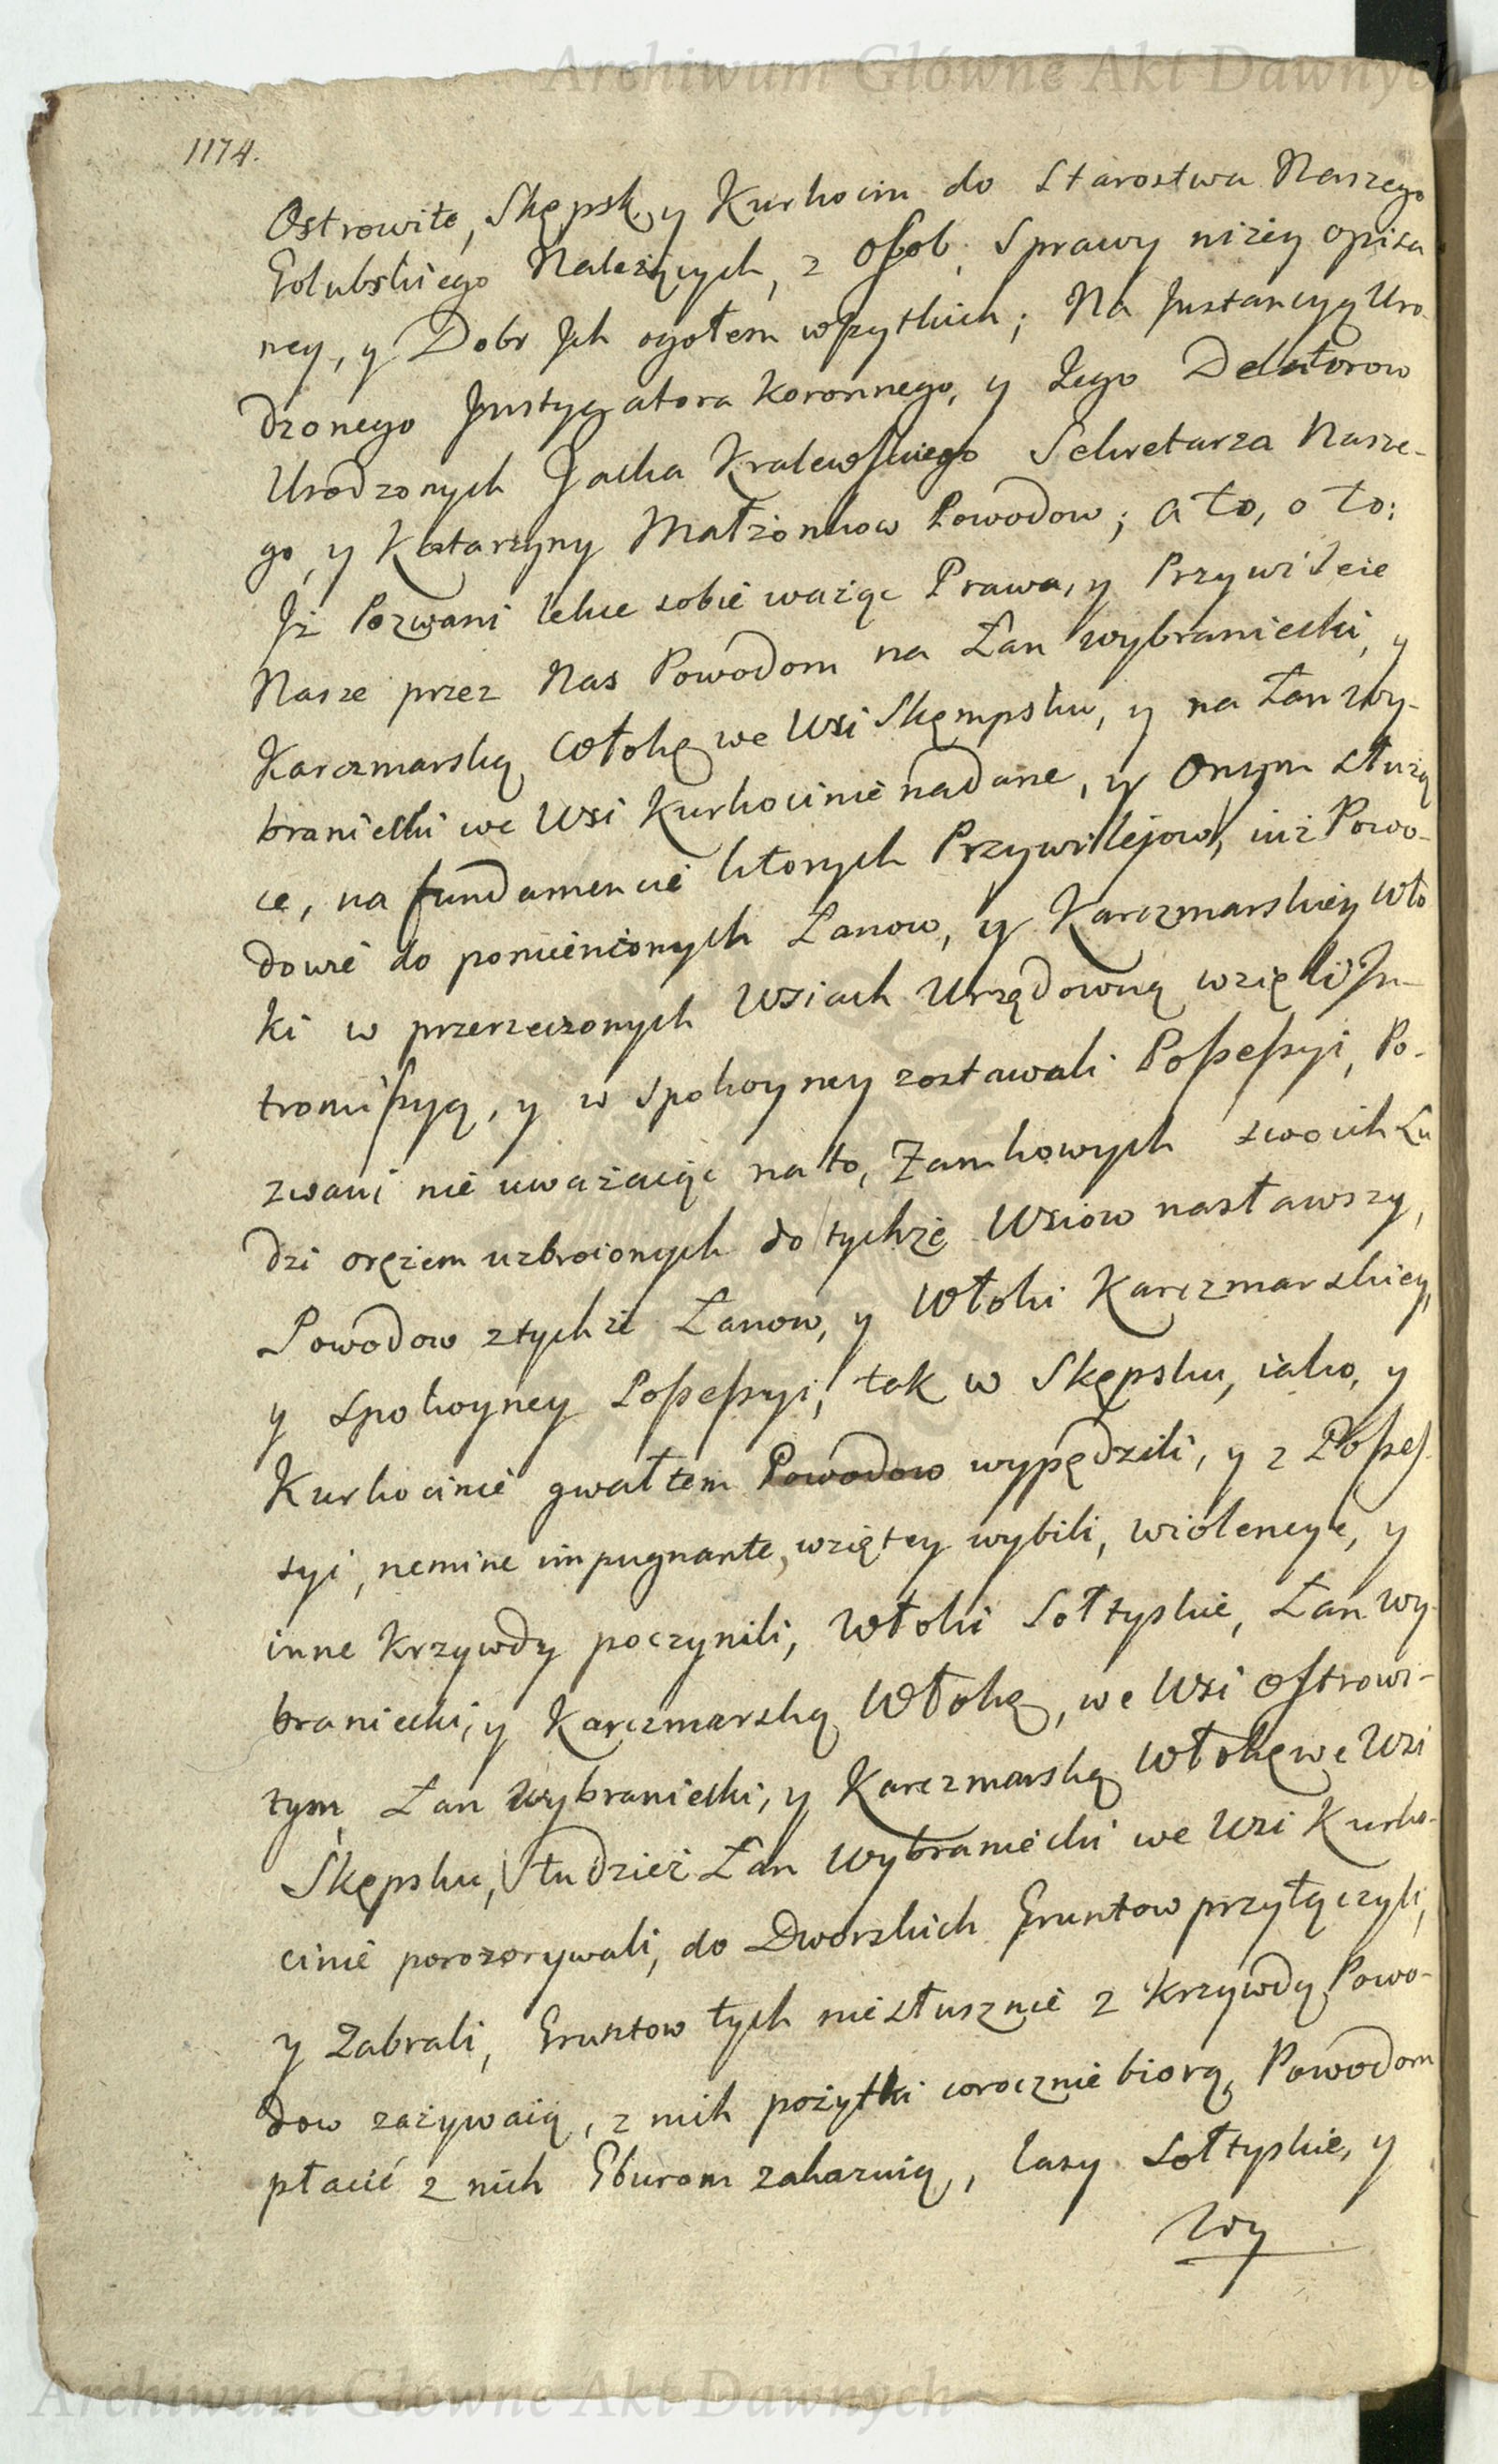 Archiwum Główne Akt Dawnych
1174.
Ostrowite, Skępsk, y Kurkocin do Starostwa Naszego
Golubskiego Należących, z Osob, Sprawy niżey opisa
ney, y Dobr Jch ogołem wszytkich; Na Jnstancyą Uro-
dzonego Jnstygatora Koronnego, y Jego Delatorow
Urodzonych Jacka Kralewskiego Sekretarza Nasze-
go, y Katarzyny Małżonkow Powodow; a to, o to:
Jż Pozwani lekce sobie ważąc Prawa, y Przywileie
Nasze przez Nas Powodom na Łan wybraniecki, y
Karczmarską Włokę we Wsi Skęmpsku, y na Łan Wy-
braniecki we Wsi Kurkocinie nadane, y Onym służą
ce, na fundamencie ktorych Przywilejow, iuż Powo-
dowie do pomienionych Łanow, y Karczmarskiey Wło
ki w przerzeczonych Wsiach Urzędowną wzięli Jn-
tromissyą, y w spokoyney zostawali Possessyi, Po-
zwani nie uważaiąc na to, Zamkowych swoich Lu
dzi orężem uzbroionych do tychże Wsiow nasławszy,
Powodow z tychże Łanow, y Włoki Karczmarskiey,
y spokoyney Possessyi, tak w Skępsku, iako, y
Kurkocinie gwałtem Powodow wypędzili, y z Posses-
syi, nemine impugnante, wziętey wybili, wiolencye, y
inne Krzywdy poczynili, Włoki Sołtyskie, Łan Wy-
braniecki, y Karczmarską Włokę, we Wsi Ostrowi-
tym, Łan Wybraniecki, y Karczmarską Włokę we Wsi
Skępsku, tudzież Łan Wybraniecki we Wsi Kurko-
cinie porozorywali, do Dworskich Gruntow przyłączyli,
y Zabrali, Gruntow tych niesłusznie z Krzywdą Powo-
dow zażywaią, z nich pożytki corocznie biorą, Powodom
płacić z nich Gburom zakazuią, lasy Sołtyskie, y
Wy
Archiwum Główne Akt Dawnych